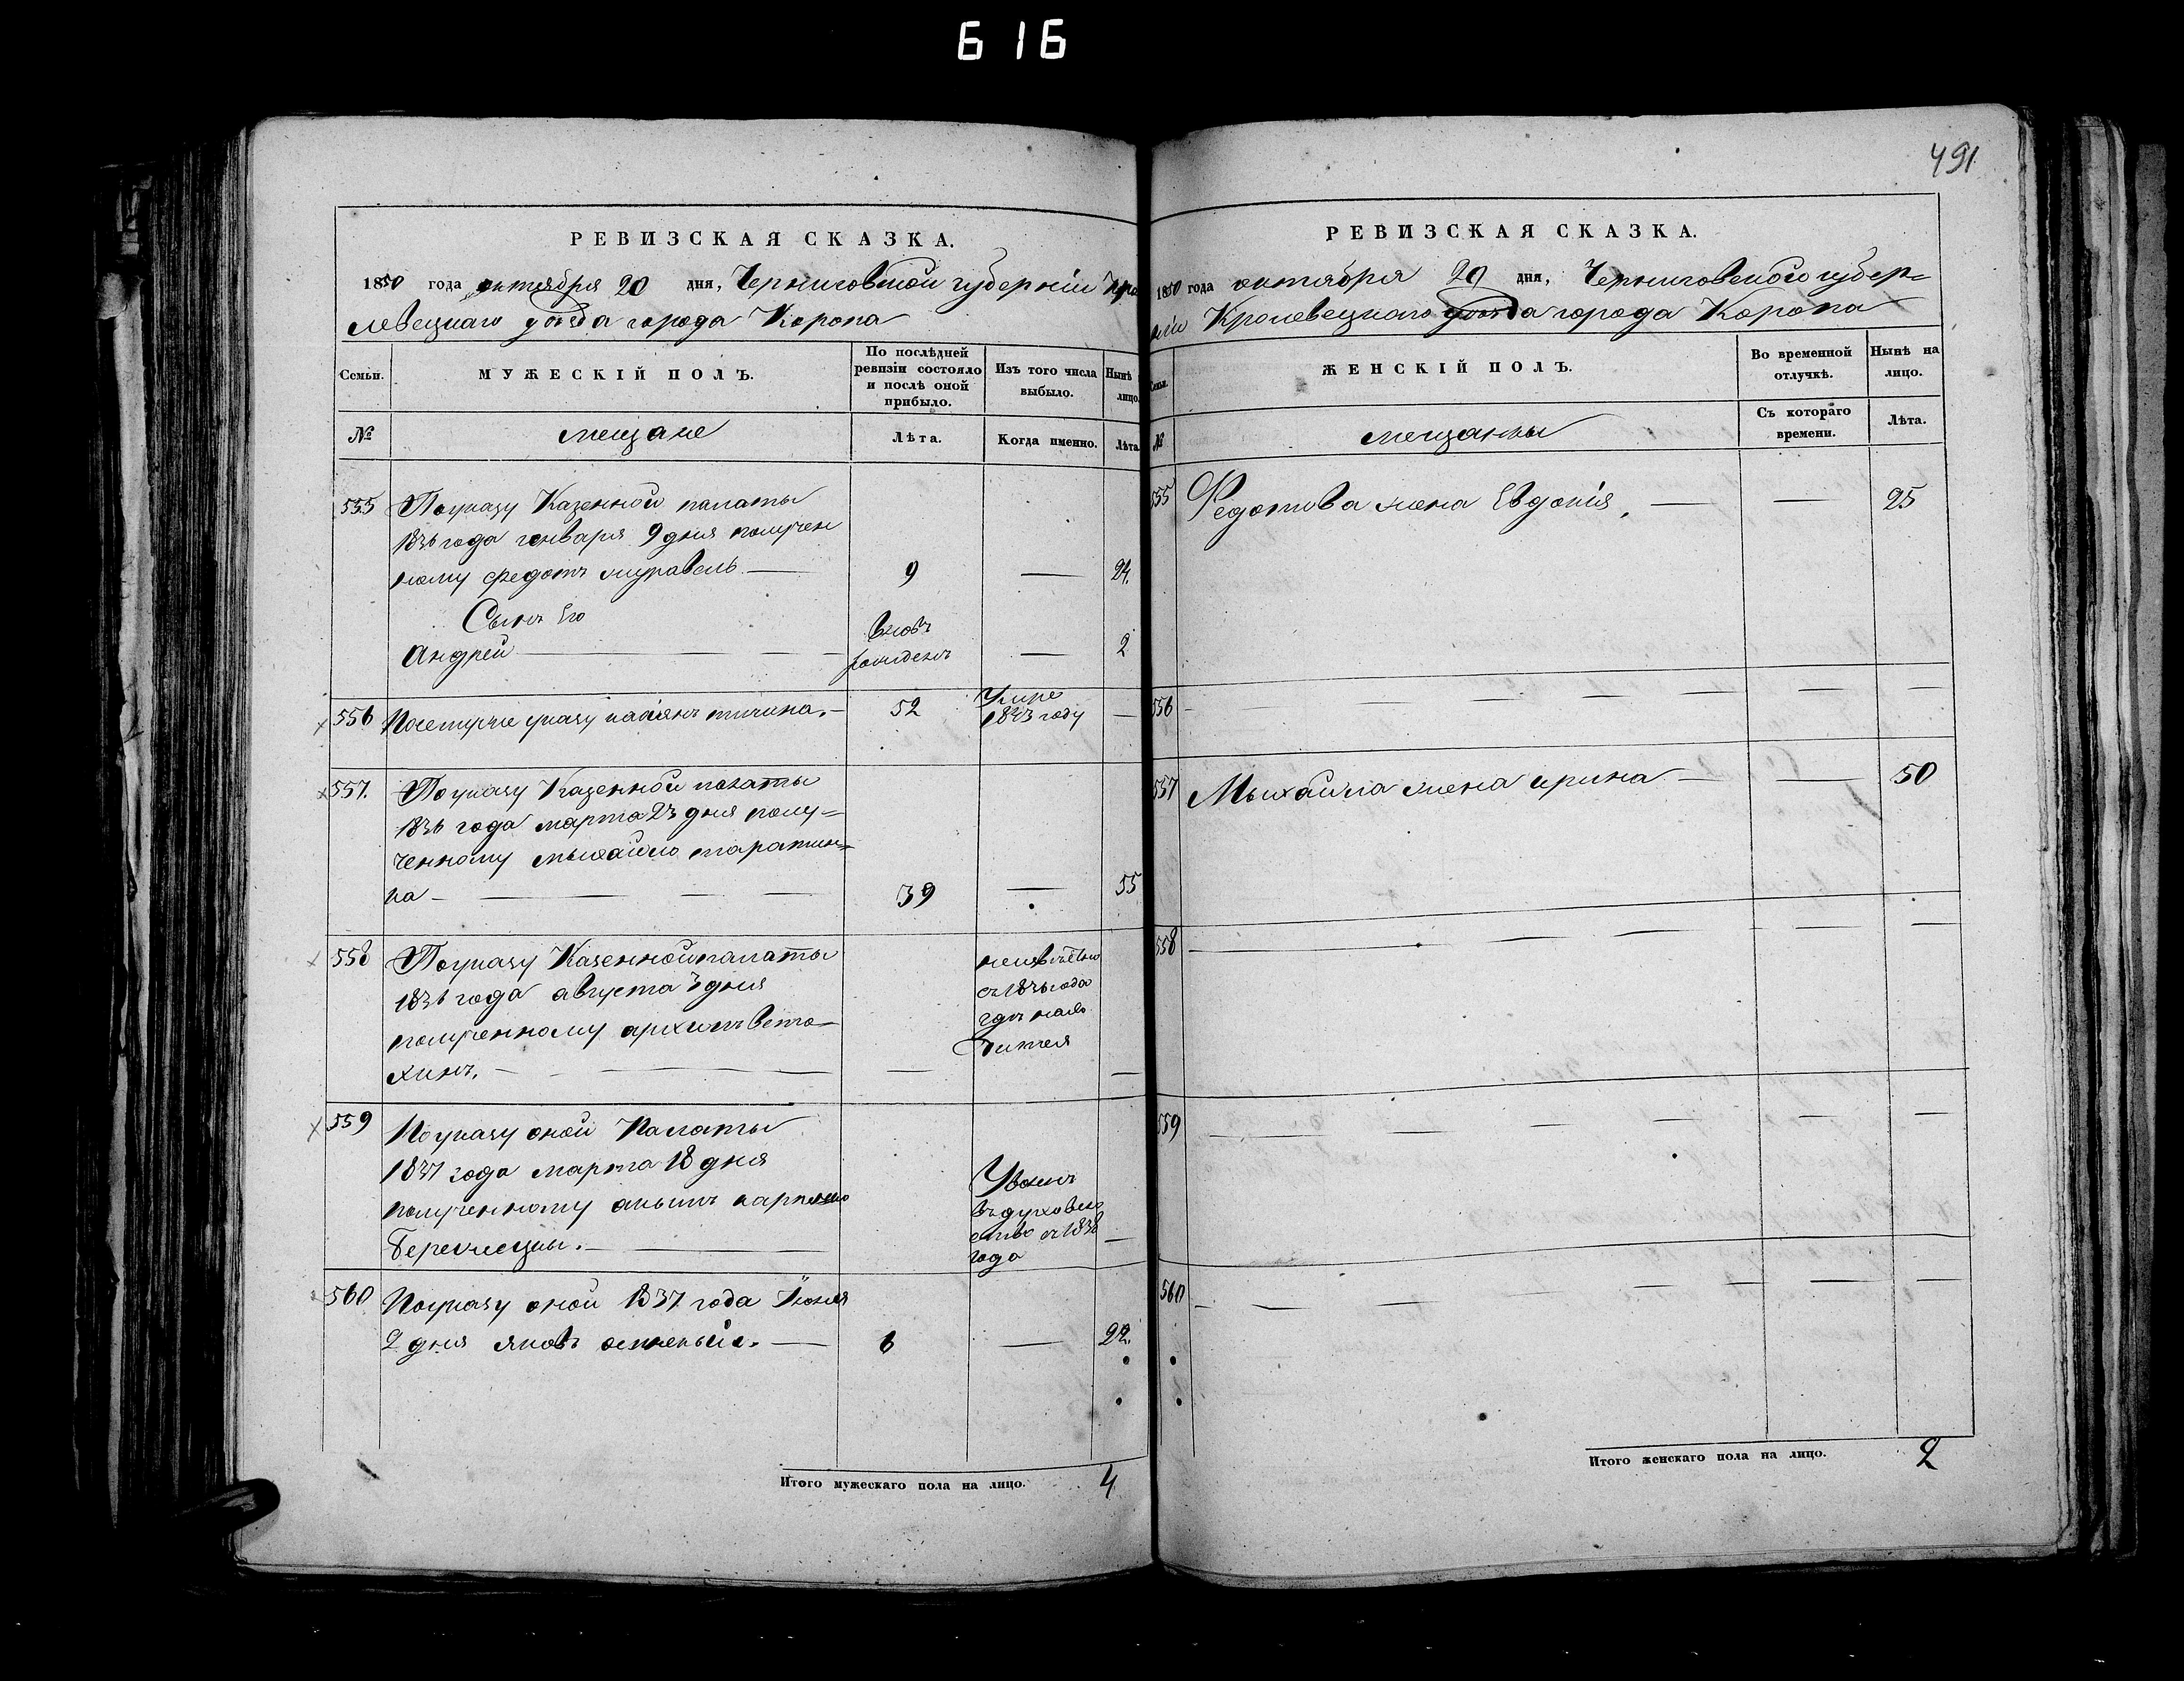 616
491
РЕВИЗСКАЯ СКАЗКА.
1850 года октября 20 дня, Черниговской губерніи Кро
левецкаго уѣзда города Коропа
Семьи.
МУЖЕСКІЙ ПОЛЪ.
По послѣдней ревизіи состояло и послѣ оной прибыло.
Изъ того числа выбыло.
Нынѣ лицо.
№
мещане
Лѣта.
Когда именно.
Лѣта.
555
По указу Казенной палаты
1836 года генваря 9 дня получен
ному Федотъ муравель
9
24.
Сынъ Его
Андрей
вновь
рожденъ
2
556
52
Умре
1843 году
557.
По указу Казенной палаты
1836 года марта 23 дня полу=
ченному Мыхайло таратин=
ка
39
55
558
По указу Казенной палаты
1836 года августа 3 дня
полученному архипъ вето
хинъ.
неизвѣстно
съ 1836 года
559
По указу оной Палаты
1837 года марта 18 дня
полученному
въ духовен
ство съ 1838
года
560
По указу оной 1837 года Іюня
2 дня яковъ
6
22.
Итого мужескаго пола на лицо.
4
РЕВИЗСКАЯ СКАЗКА.
1850 года октября 20 дня, Черниговской губер=
ніи Кролевецкаго уѣзда города Коропа
Семьи.
ЖЕНСКІЙ ПОЛЪ.
Во временной отлучкѣ.
Нынѣ на лицо.
№
мещанки
Съ котораго времени.
Лѣта.
555
Федотова жена Евдокія.
25
556
557
Мыхайла жена ирина
50
558
559
560
Итого женскаго пола на лицо.
2